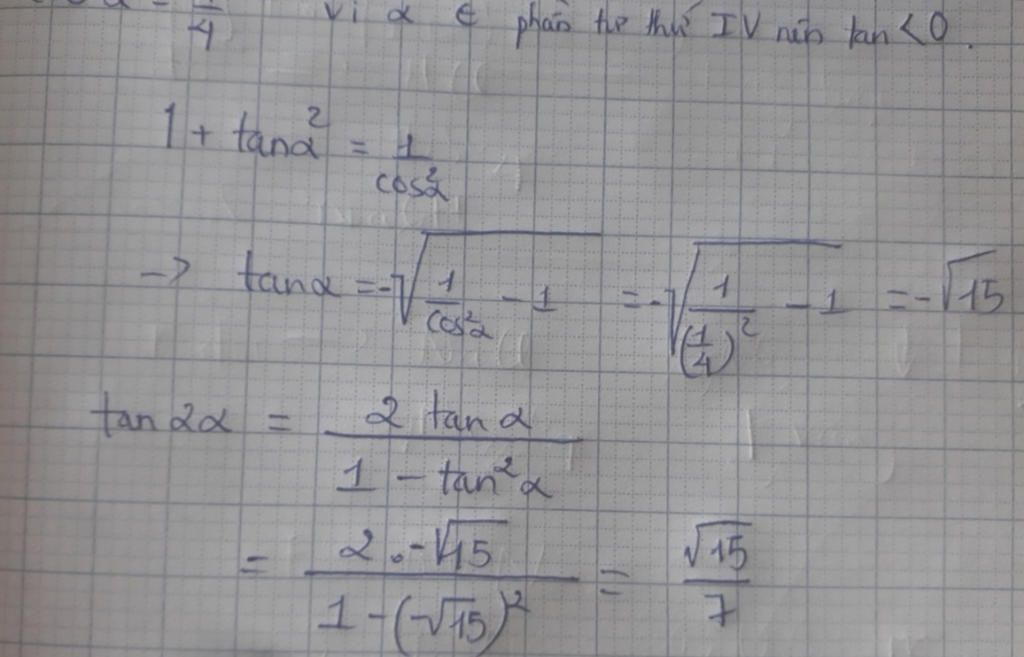 α = 1/4 vì α ∈ phần tư thứ IV nên tan < 0.
1 + tanα² = 1/cos²α
-> tanα = -√(1/cos²α - 1) = -√(1/(1/4)² - 1) = -√15
tan 2α = 2 tan α / (1 - tan²α)
= 2 . -√15 / (1 - (-√15)²) = √15/7